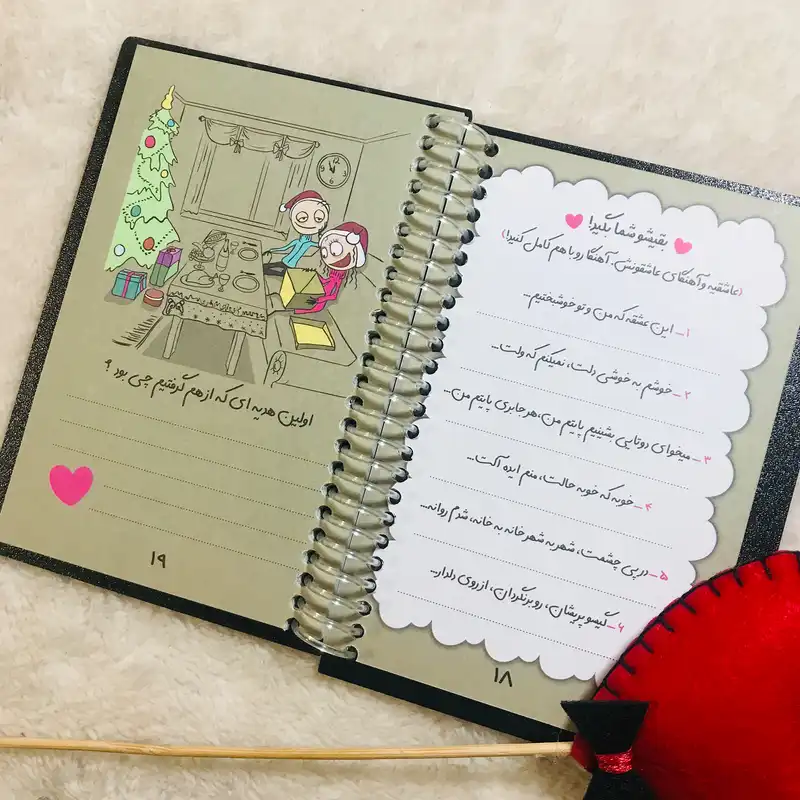 بقیشو شما بگید!
(عاشقیه و آهنگای عاشقونش. آهنگا رو با هم کامل کنید!)
۱_ این عشقه که من و تو خوشبختیم...
۲_ خوشم به خوشی دلت، نمیکنم که ولت...
۳_ میخوای دوتایی بشینیم پایتم من، هر جا بری پایتم من...
۴_ خوبه که خوبه حالت، منم ایده آلت...
۵_ در پی چشمت، شهر به شهر خانه به خانه، شدم روانه...
۶_ گیسو پریشان، رو برنگردان، از روی دلدار...
۱۸
اولین هدیه ای که از هم گرفتیم چی بود ؟
۱۹